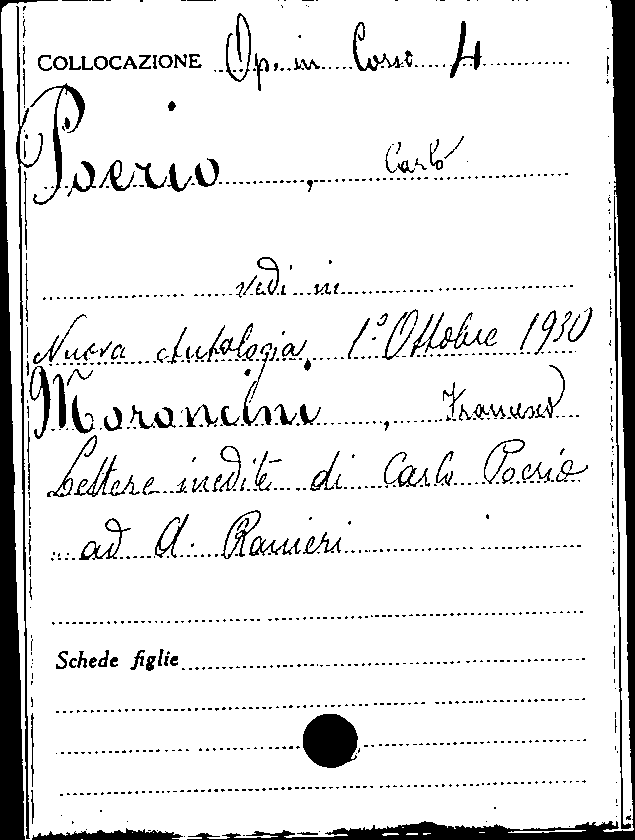 COLLOCAZIONE Op. in Corso 4
Poerio, Carlo
vedi in
Nuova Antologia 1º Ottobre 1930
Moroncini, Francesco
Lettere inedite di Carlo Poerio
ad A. Ranieri
Schede figlie